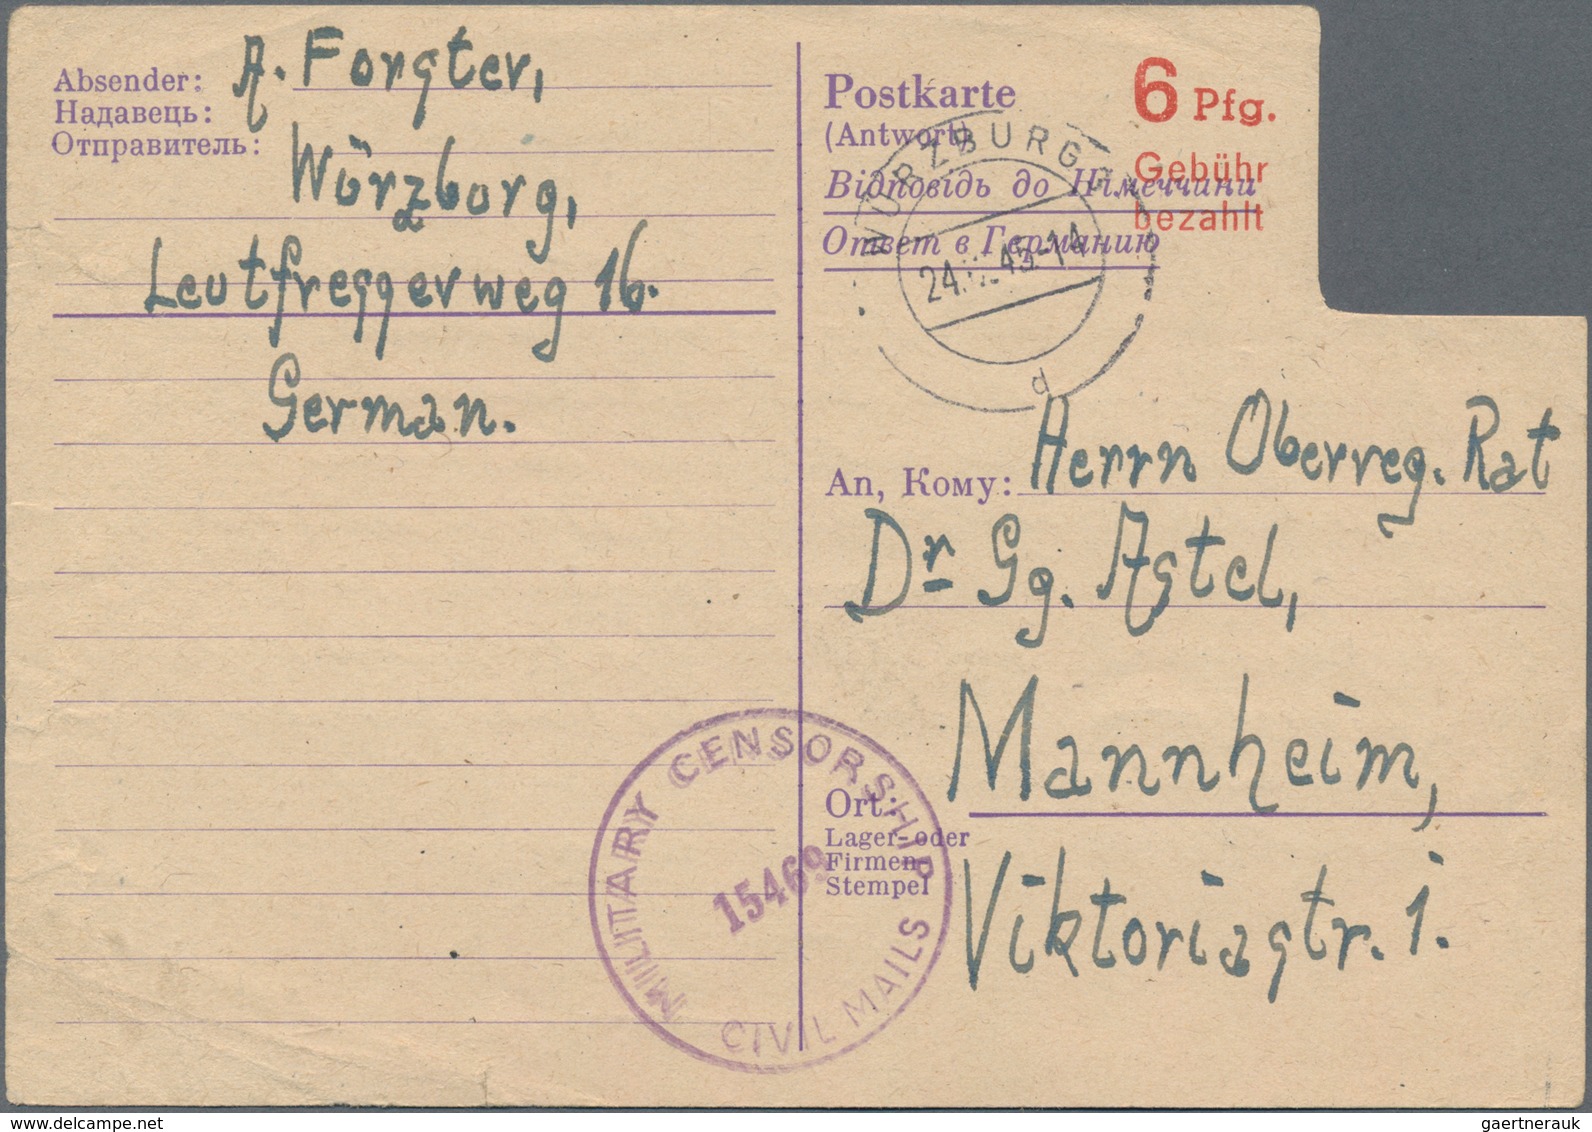 Absender:
Надавець:
Отправитель:
A. Forster,
Würzburg,
Leutfresserweg 16.
German.
Postkarte
(Antwort)
Відповідь до Німеччини
Ответ в Германию
6 Pfg.
Gebühr
bezahlt
WÜRZBURG
24. 45.-14
d
An, Кому: Herrn Oberreg. Rat
Dr Gg. Astel,
Mannheim,
Ort:
Lager- oder
Firmen-
Stempel
Viktoriastr. 1.
MILITARY CENSORSHIP
15469
CIVIL MAILS
delcampe.net
gaertnerauk